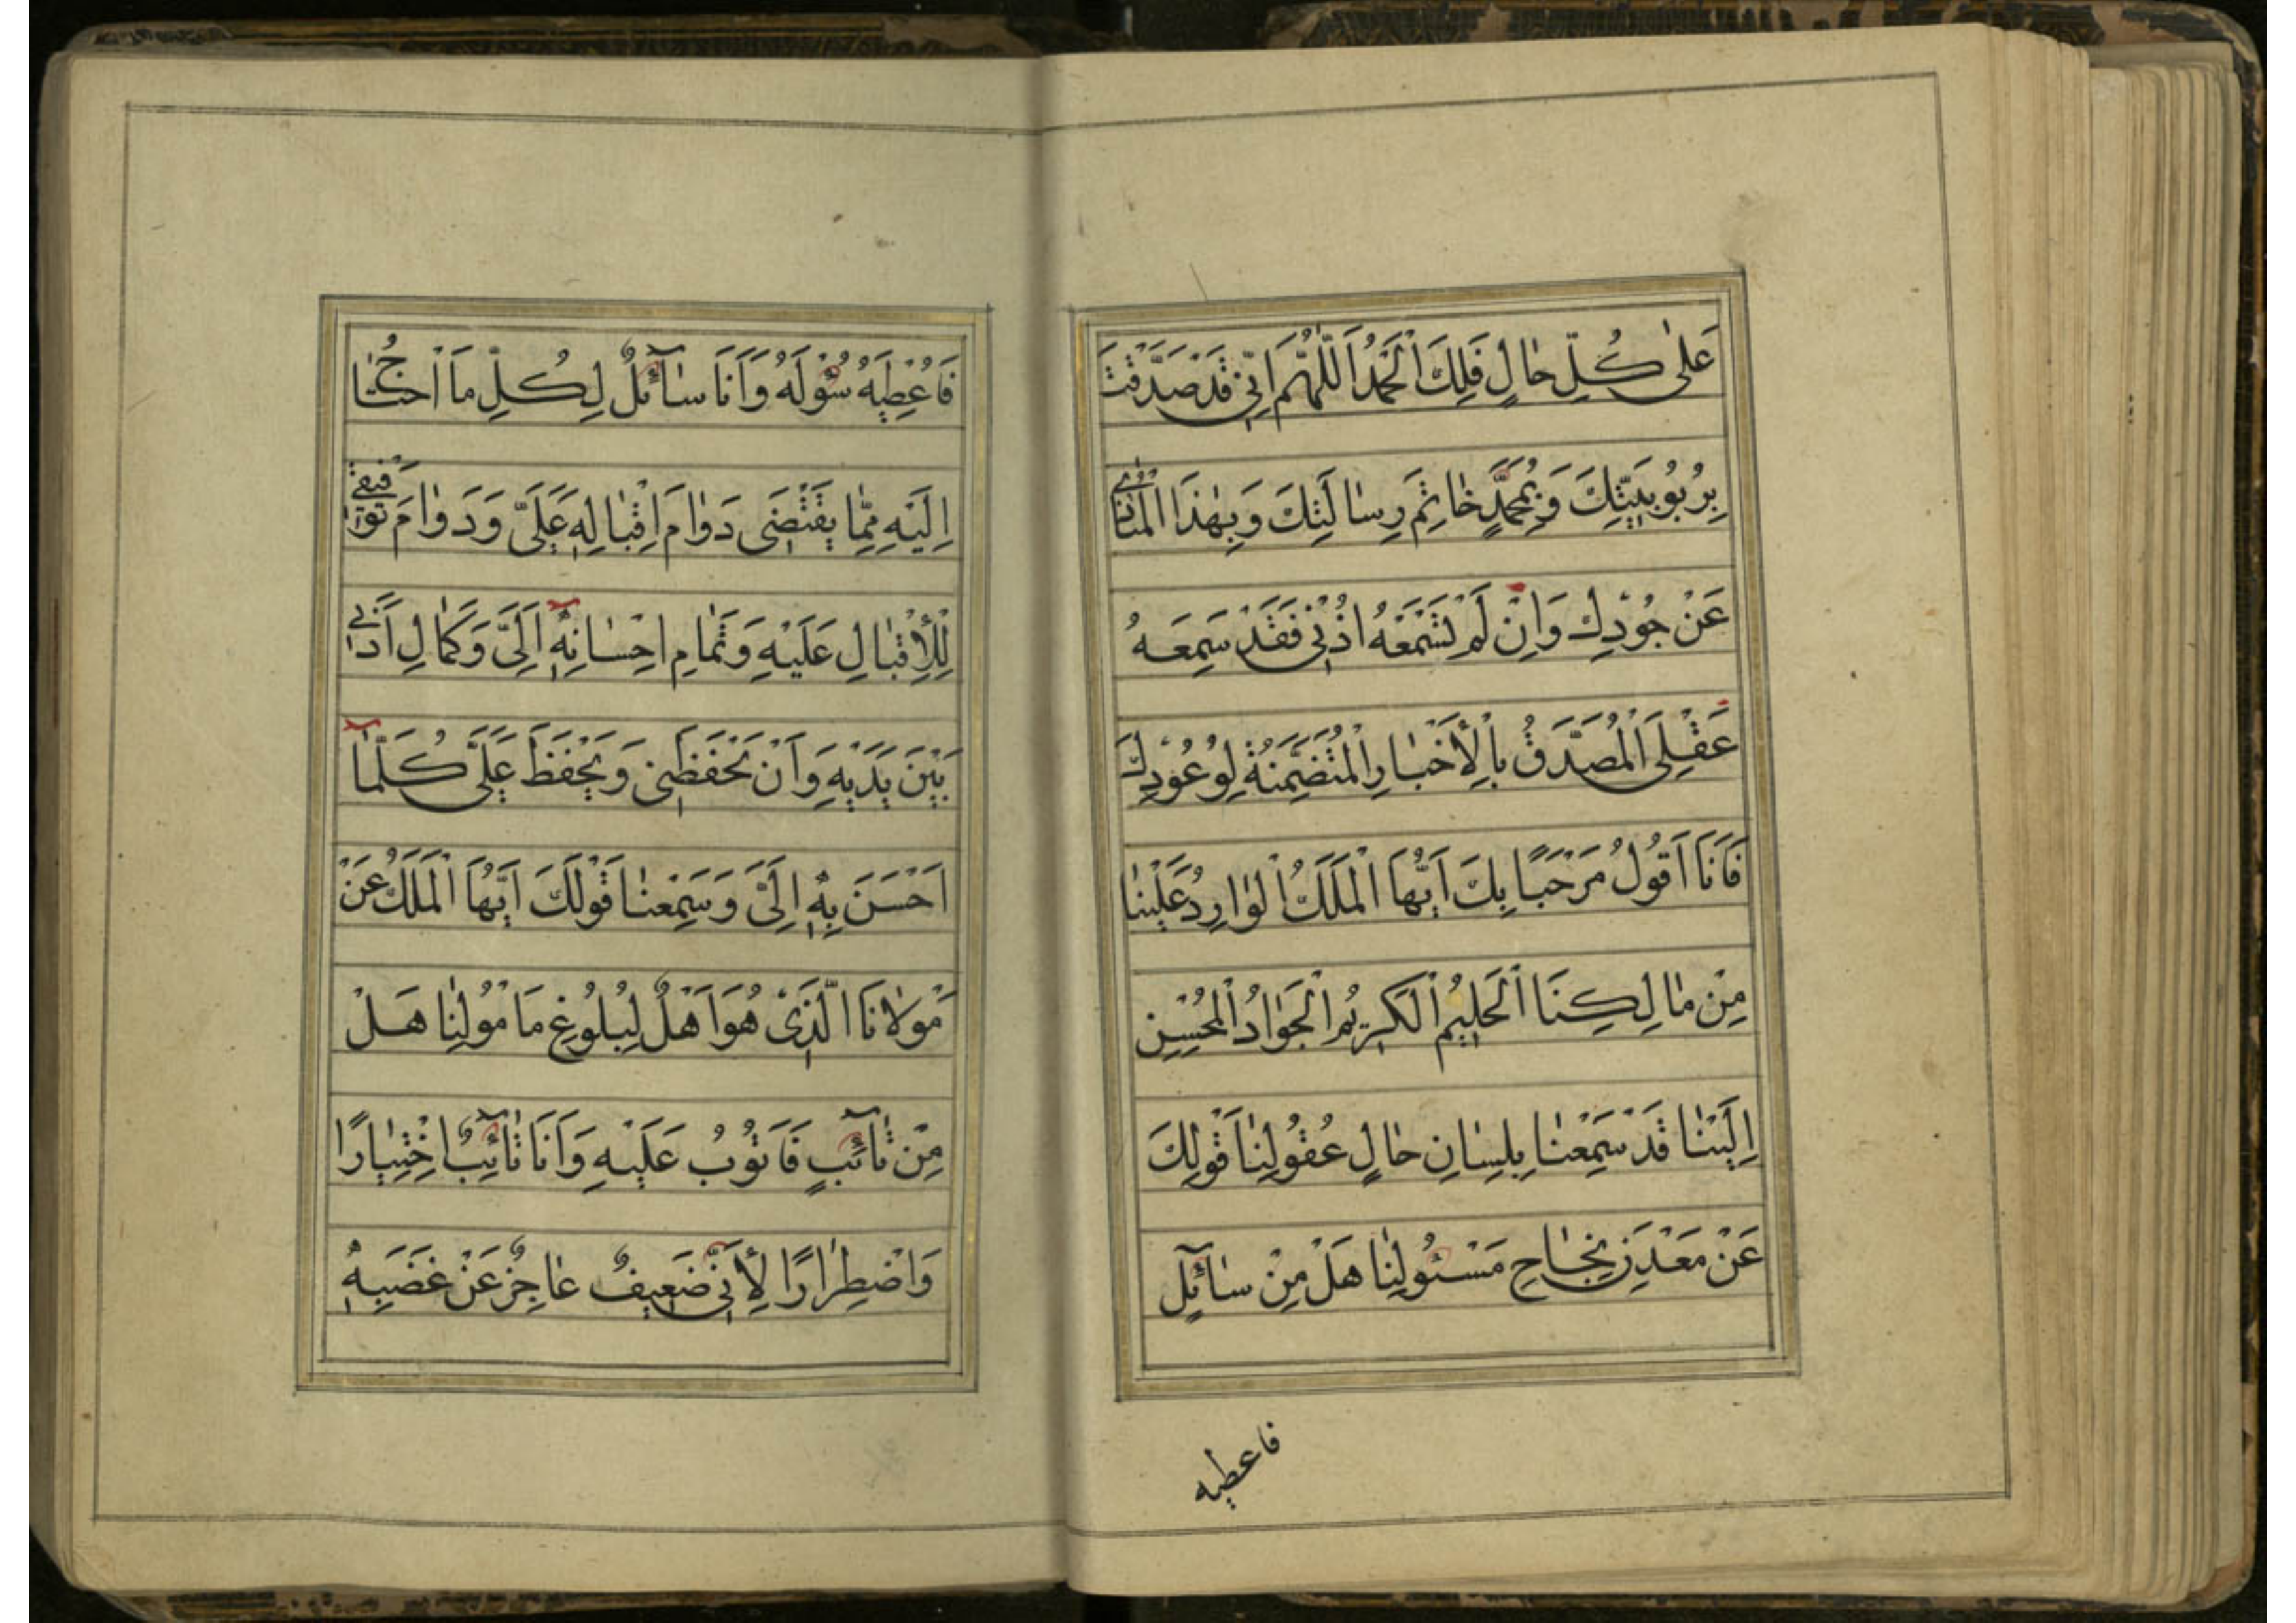 عَلٰى كُلِّ حٰالٍ فَلَكَ الْحَمْدُ اَللّٰهُمَّ اِنّٖى قَدْ صَدَّقْتُ
بِرُبُوبِيَّتِكَ وَبِمُحَمَّدٍ خٰاتِمِ رِسٰالَتِكَ وَبِهٰذَا الْمُنٰادٖى
عَنْ جُوْدِكَ وَاِنْ لَمْ تَسْمَعْهُ اُذُنٖى فَقَدْ سَمِعَهُ
عَقْلِىَ الْمُصَدِّقُ بِالْأَخْبٰارِ الْمُتَضَمِّنَةِ لِوُعُوْدِكَ
فَاَنَا اَقُولُ مَرْحَبًا بِكَ اَيُّهَا الْمَلَكُ الْوٰارِدُ عَلَيْنٰا
مِنْ مٰالِكِنَا الْحَلٖيمِ الْكَرٖيمِ الْجَوٰادِ الْمُحْسِنِ
اِلَيْنٰا قَدْ سَمِعْنٰا بِلِسٰانِ حٰالِ عُقُولِنٰا قَوْلَكَ
عَنْ مَعْدِنِ نَجٰاحِ مَسْئُولِنٰا هَلْ مِنْ سٰآئِلٍ
فاعطيه
فَاُعْطِيَهُ سُؤْلَهُ وَاَنَا سٰآئِلٌ لِكُلِّ مَا اَحْتٰاجُ
اِلَيْهِ مِمّٰا يَقْتَضٖى دَوٰامَ اِقْبٰالِهٖ عَلَىَّ وَدَوٰامَ تَوْفٖيقٖى
لِلْأِقْبٰالِ عَلَيْهِ وَتَمٰامِ اِحْسٰانِهٖٓ اِلَىَّ وَكَمٰالِ اَدَبٖى
بَيْنَ يَدَيْهِ وَاَنْ يَحْفَظَنٖى وَيَحْفَظَ عَلَىَّ كُلَّمٰآ
اَحْسَنَ بِهٖٓ اِلَىَّ وَسَمِعْنٰا قَوْلَكَ اَيُّهَا الْمَلَكُ عَنْ
مَوْلٰانَا الَّذٖى هُوَ اَهْلٌ لِبُلُوغِ مَامُولِنٰا هَلْ
مِنْ تٰآئِبٍ فَاَتُوْبُ عَلَيْهِ وَاَنَا تٰآئِبٌ اِخْتِيٰارًا
وَاضْطِرٰارًا لِأَنّٖى ضَعٖيفٌ عٰاجِزٌ عَنْ غَضَبِهٖٓ